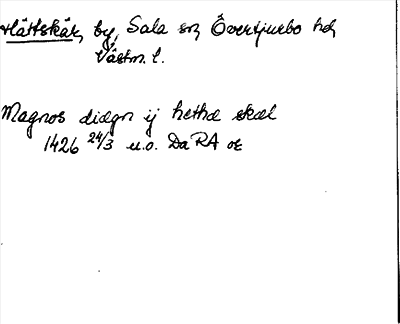 Hättskäk, by, Sala sn Övertjurbo hd,
Västm. l.
Magnos diægn ij hethæ skæl
1426 24/3 u.o. Da RA or